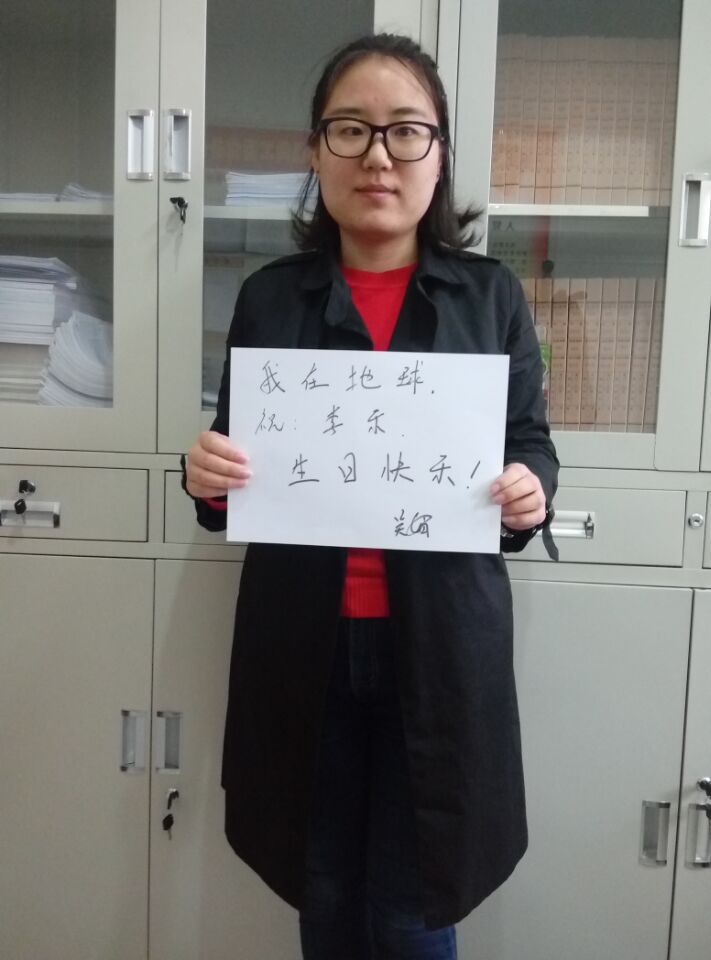 我在地球.
祝: 李乐.
生日快乐!
吴